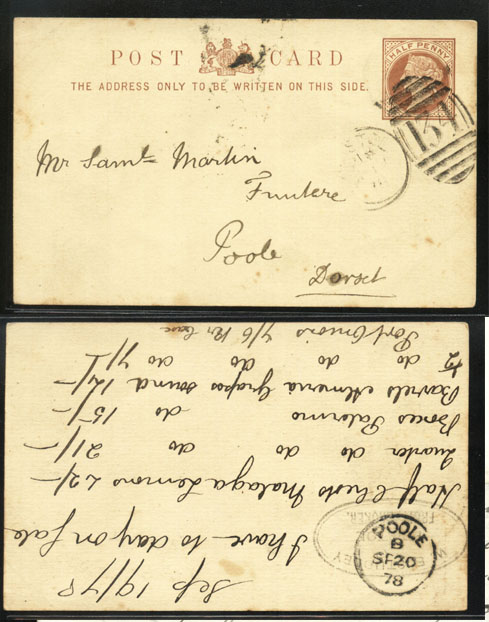 POST CARD
THE ADDRESS ONLY TO BE WRITTEN ON THIS SIDE.
HALF PENNY
154
Mr Saml Martin
Poole
Dorset
Sep 19/78
I have to day on Sale
Half Chests Malaga Lemons 22/-
Quarter do do do 21/-
Boxes Palermo do 15/-
Barrels Almeria Grapes sound 12/-
do do do do
Port Onions 7/6 Per Case
POOLE
B
SP 20
78